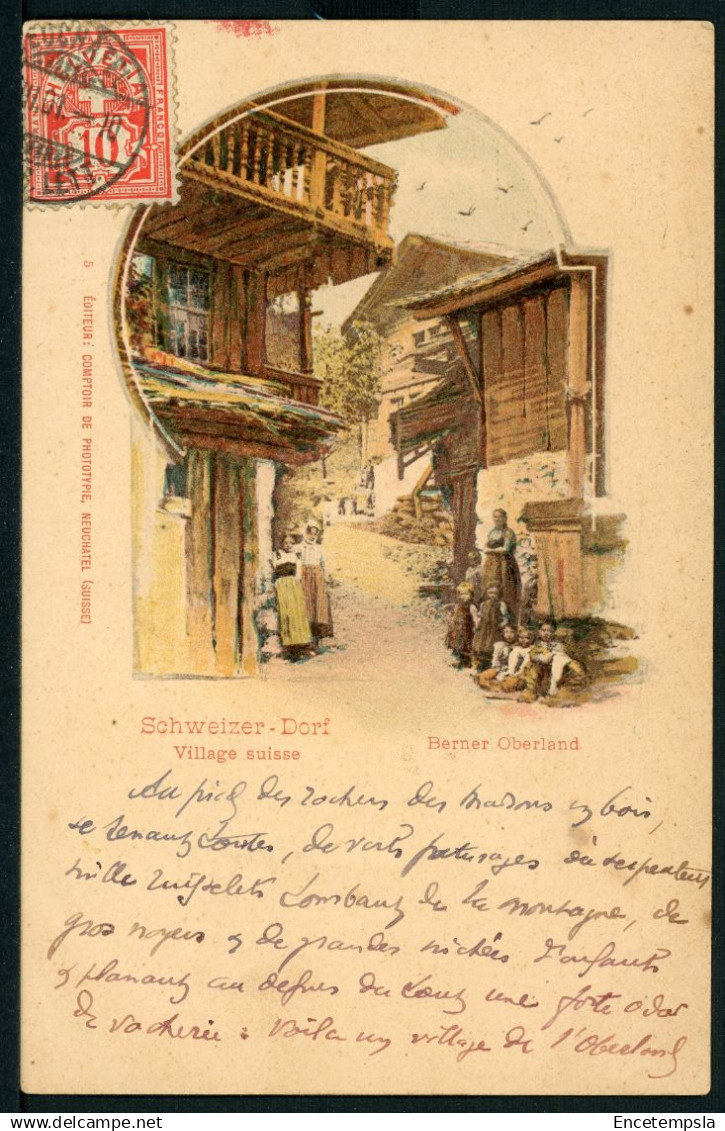 HELVETIA
FRANCO
10
5 ÉDITEUR: COMPTOIR DE PHOTOTYPIE, NEUCHATEL (SUISSE)
Schweizer-Dorf
Village suisse
Berner Oberland
Au pied des rochers des maisons en bois,
se tenant toutes, de verts paturages où serpentent
mille ruisselets tombant de la montagne, de
gros noyers & de grandes nichées d'enfants
& planant au dessus du tout une forte odeur
de vacherie : Voilà un village de l'Oberland
Encetempsla